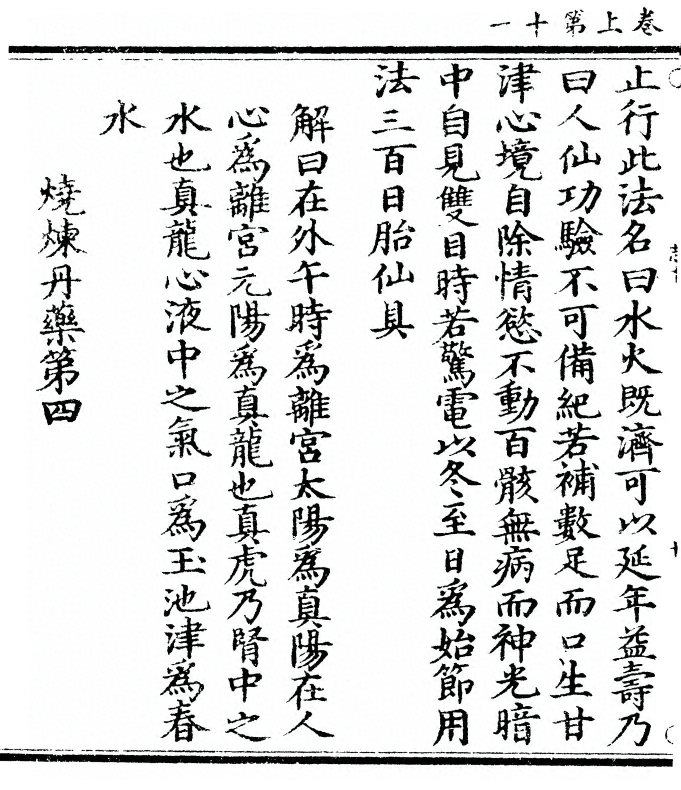 卷上第十一
止行此法名曰水火既濟可以延年益壽乃
曰人仙功驗不可備紀若補數足而口生甘
津心境自除情慾不動百骸無病而神光暗
中自見雙目時若驚電以冬至日爲始節用
法三百日胎仙具
解曰在外午時爲離宮太陽爲真陽在人
心爲離宮元陽爲真龍也真虎乃腎中之
水也真龍心液中之氣口爲玉池津爲春
水
燒煉丹藥第四